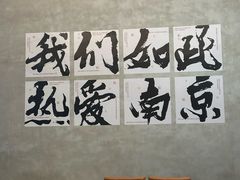 我们如此
热爱南京